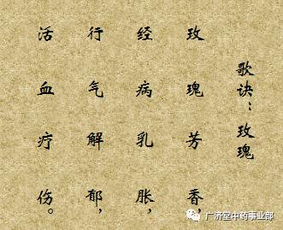 歌诀：玫瑰
玫瑰芳香，
经病乳胀，
行气解郁，
活血疗伤。
广济堂中药事业部